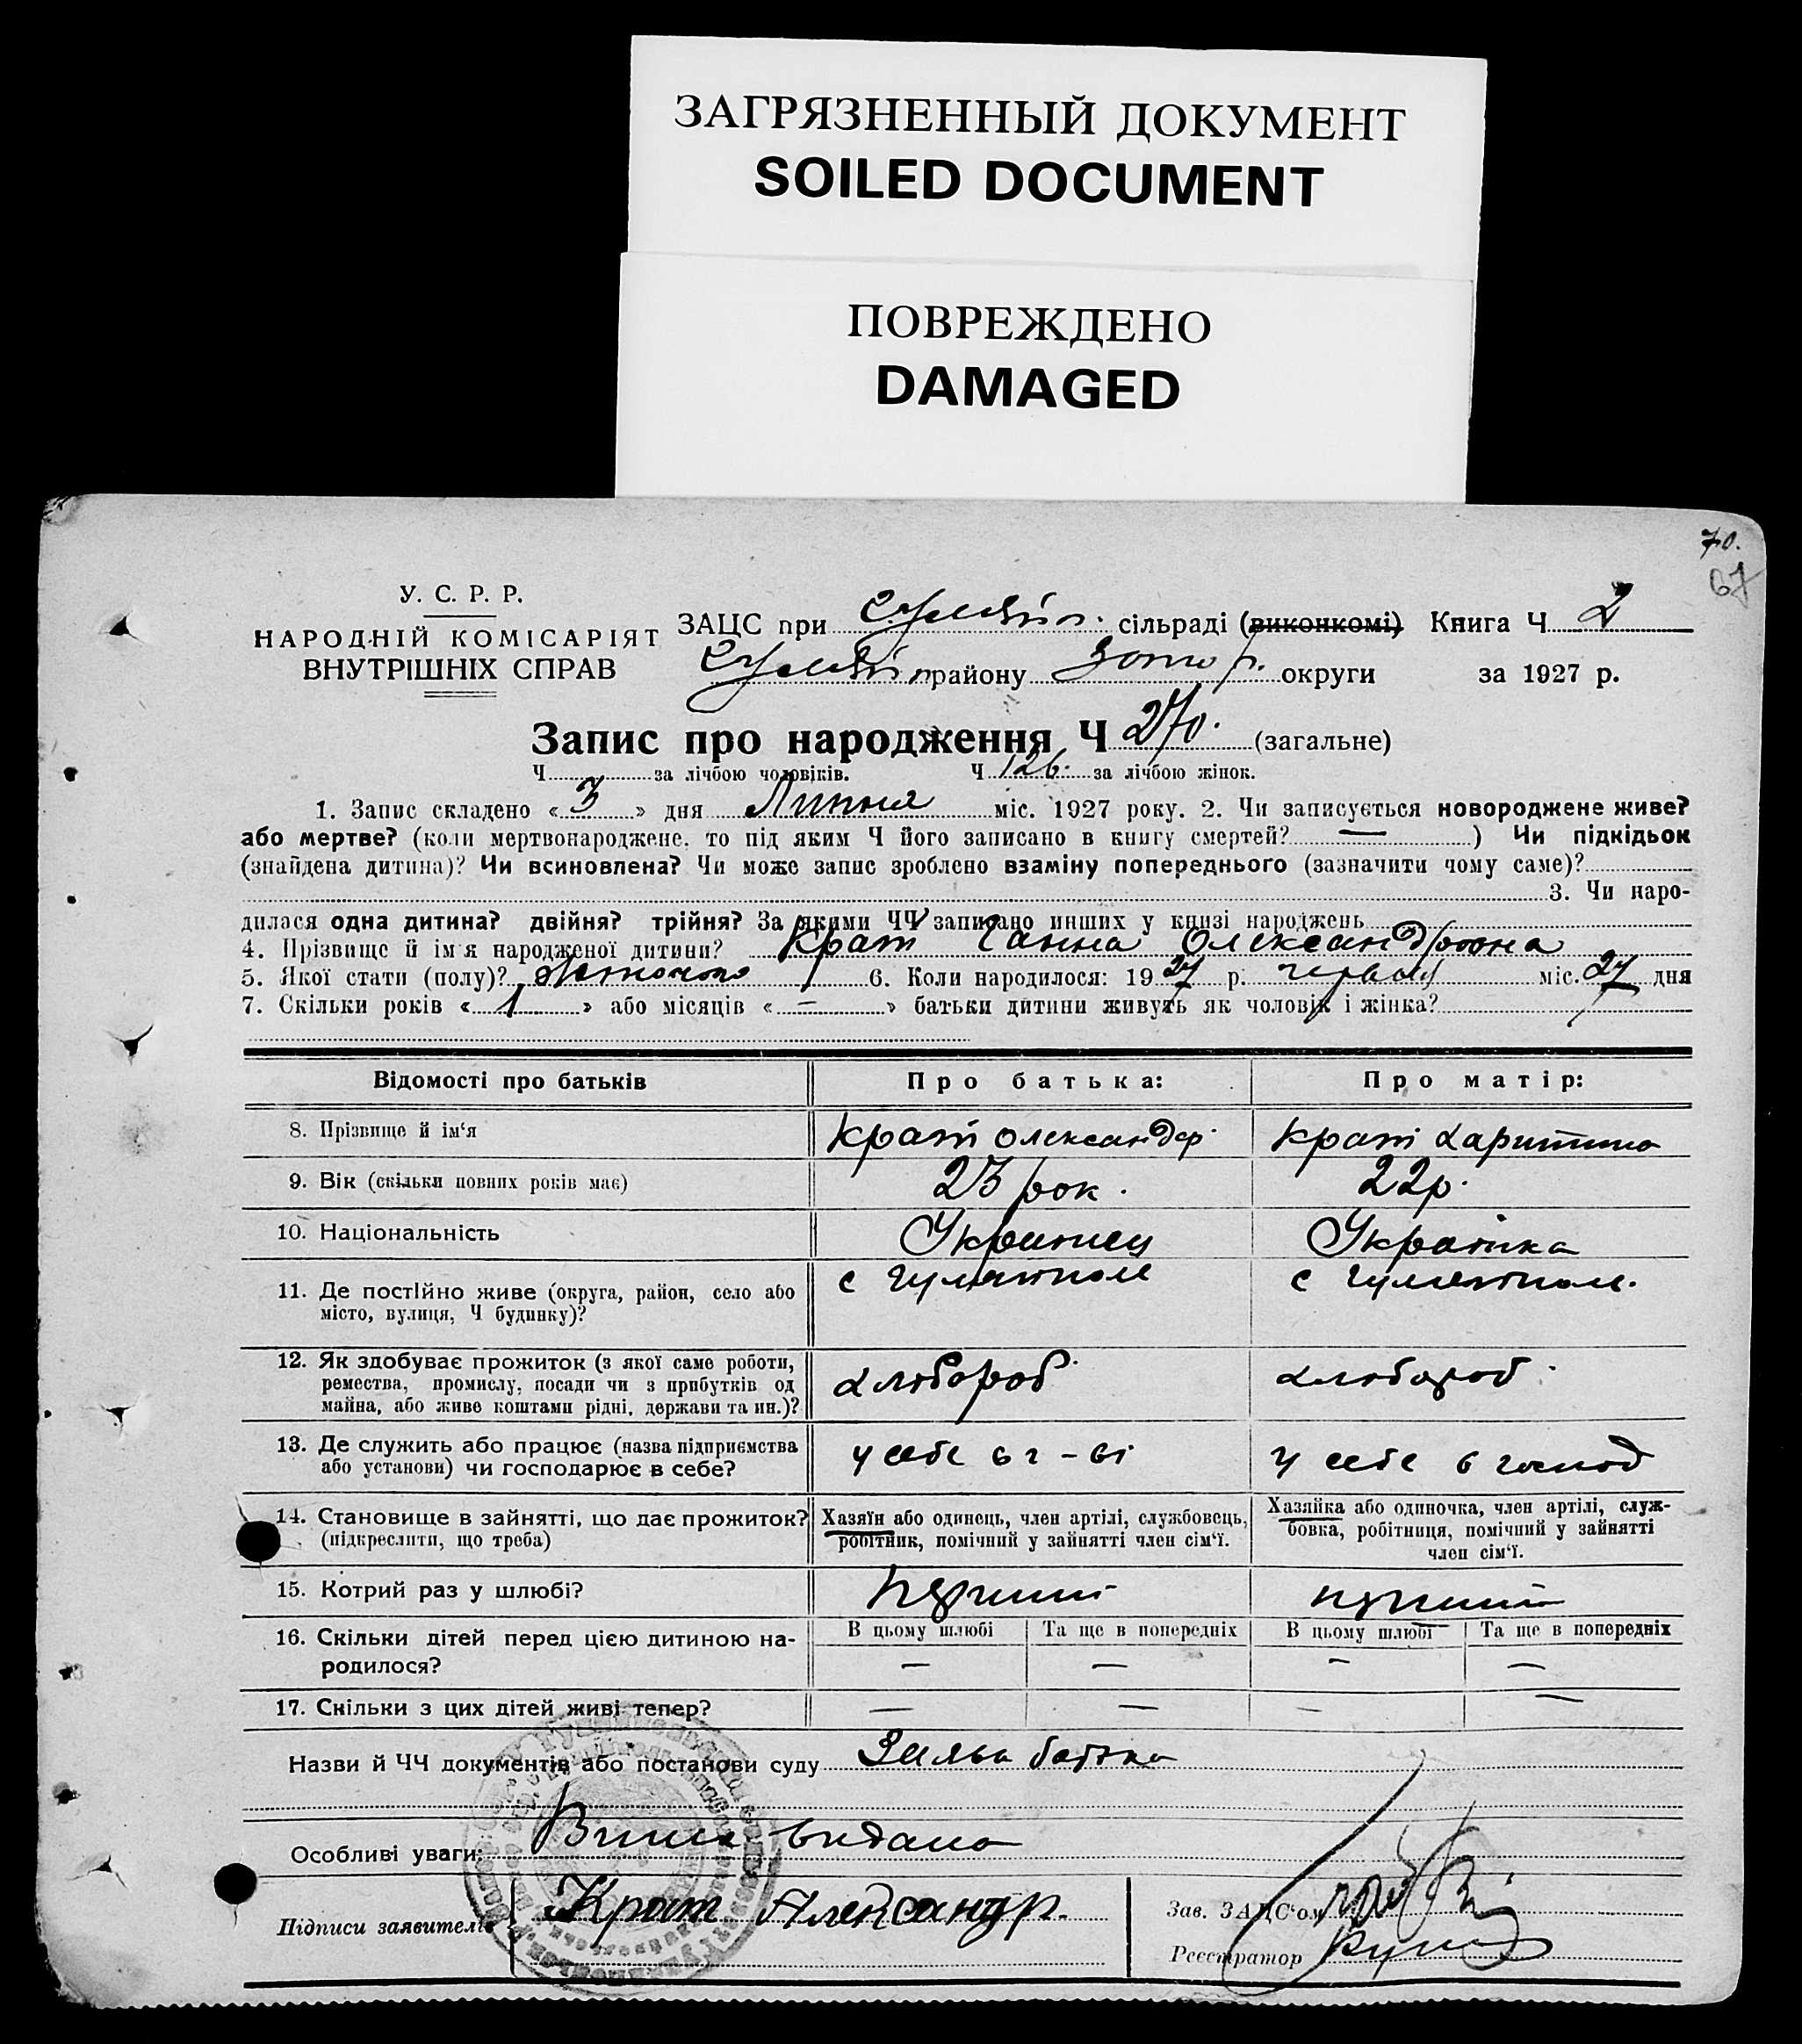 ЗАГРЯЗНЕННЫЙ ДОКУМЕНТ
SOILED DOCUMENT
ПОВРЕЖДЕНО
DAMAGED
70.
67
У. С. Р. Р.
НАРОДНІЙ КОМІСАРІЯТ
ВНУТРІШНІХ СПРАВ
ЗАЦС при сільраді (виконкомі) Книга Ч 2
району округи за 1927 р.
Запис про народження Ч 270. (загальне)
Ч за лічбою чоловіків. Ч 126. за лічбою жінок.
1. Запис складено «3» дня Липня міс. 1927 року. 2. Чи записується новороджене живе?
або мертве? (коли мертвонароджене, то під яким Ч його записано в книгу смертей? —) Чи підкідьок
(знайдена дитина)? Чи всиновлена? Чи може запис зроблено взаміну попереднього (зазначити чому саме)?
3. Чи наро-
дилася одна дитина? двійня? трійня? За якими ЧЧ записано инших у книзі народжень
4. Прізвище й ім'я народженої дитини? Крат Ганна Олександровна
5. Якої стати (полу)? 6. Коли народилося: 1927 р. червня міс. 27 дня
7. Скільки років «1» або місяців «—» батьки дитини живуть як чоловік і жінка?
Відомості про батьків Про батька: Про матір:
8. Прізвище й ім'я Крат Олександр Крат Харитина
9. Вік (скільки повних років має) 23 рок. 22 р.
10. Національність Українец Українка
11. Де постійно живе (округа, район, село або
місто, вулиця, Ч будинку)? с Гуляйполе с Гуляйполе.
12. Як здобуває прожиток (з якої саме роботи,
ремества, промислу, посади чи з прибутків од
майна, або живе коштами рідні, держави та ин.)? хлібороб хлібороб
13. Де служить або працює (назва підприємства
або установи) чи господарює в себе? у себе в г-ві у себе в господ
14. Становище в зайнятті, що дає прожиток?
(підкреслити, що треба)
Хазяїн або одинець, член артілі, службовець,
робітник, помічний у зайнятті член сім'ї.
Хазяйка або одиночка, член артілі, служ-
бовка, робітниця, помічний у зайнятті
член сім'ї.
15. Котрий раз у шлюбі? перший перший
16. Скільки дітей перед цією дитиною на-
родилося?
В цьому шлюбі Та ще в попередніх В цьому шлюбі Та ще в попередніх
— — — —
17. Скільки з цих дітей живі тепер? — — — —
Назви й ЧЧ документів або постанови суду Заява батька
Особливі уваги: видано
Підписи заявителів Крат Александр.
Зав. ЗАЦС'ом
Реєстратор